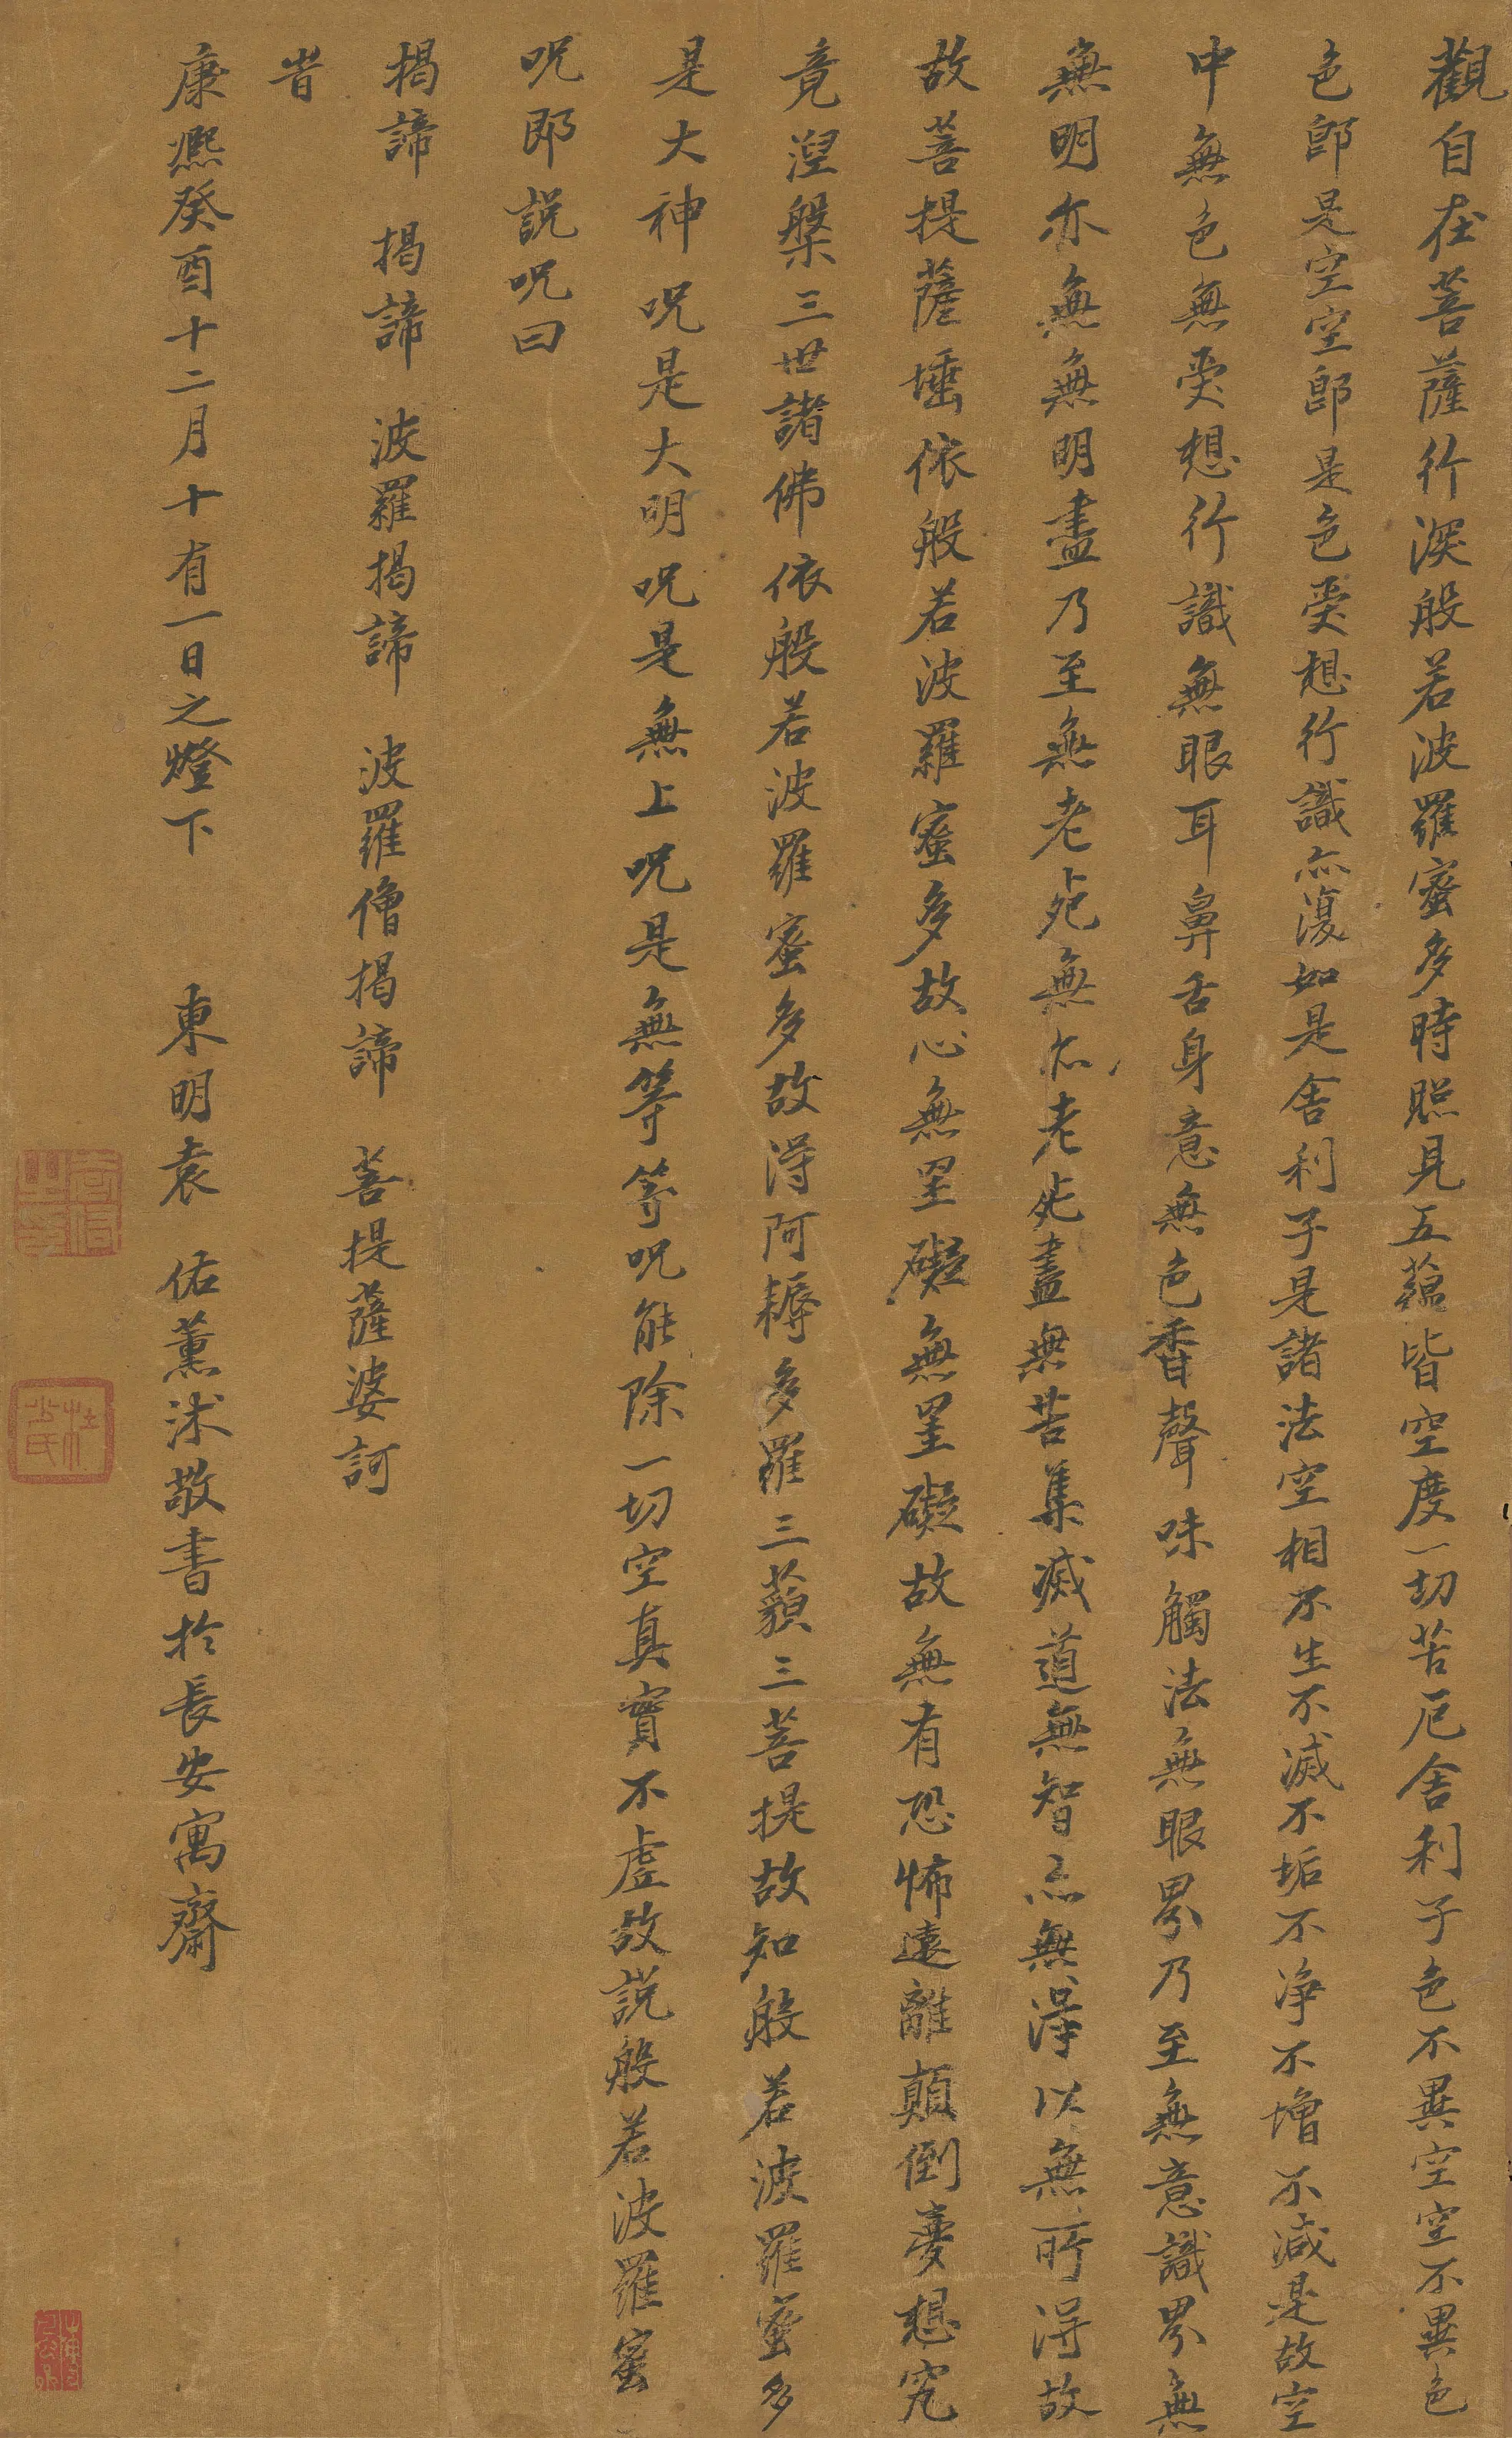 觀自在菩薩行深般若波羅蜜多時照見五蘊皆空度一切苦厄舍利子色不異空空不異色
色即是空空即是色受想行識亦復如是舍利子是諸法空相不生不滅不垢不淨不增不減是故空
中無色無受想行識無眼耳鼻舌身意無色香聲味觸法無眼界乃至無意識界無
無明亦無無明盡乃至無老死無亦老死盡無苦集滅道無智亦無得以無所得故
故菩提薩埵依般若波羅蜜多故心無罣礙無罣礙故無有恐怖遠離顛倒夢想究
竟涅槃三世諸佛依般若波羅蜜多故得阿耨多羅三藐三菩提故知般若波羅蜜多
是大神呪是大明呪是無上呪是無等等呪能除一切空真實不虛故說般若波羅蜜
呪即說呪曰
揭諦 揭諦 波羅揭諦 波羅僧揭諦 菩提薩婆訶
昔
康熙癸酉十二月十有一日之燈下 東明袁 佑薰沐敬書於長安寓齋
杜少氏